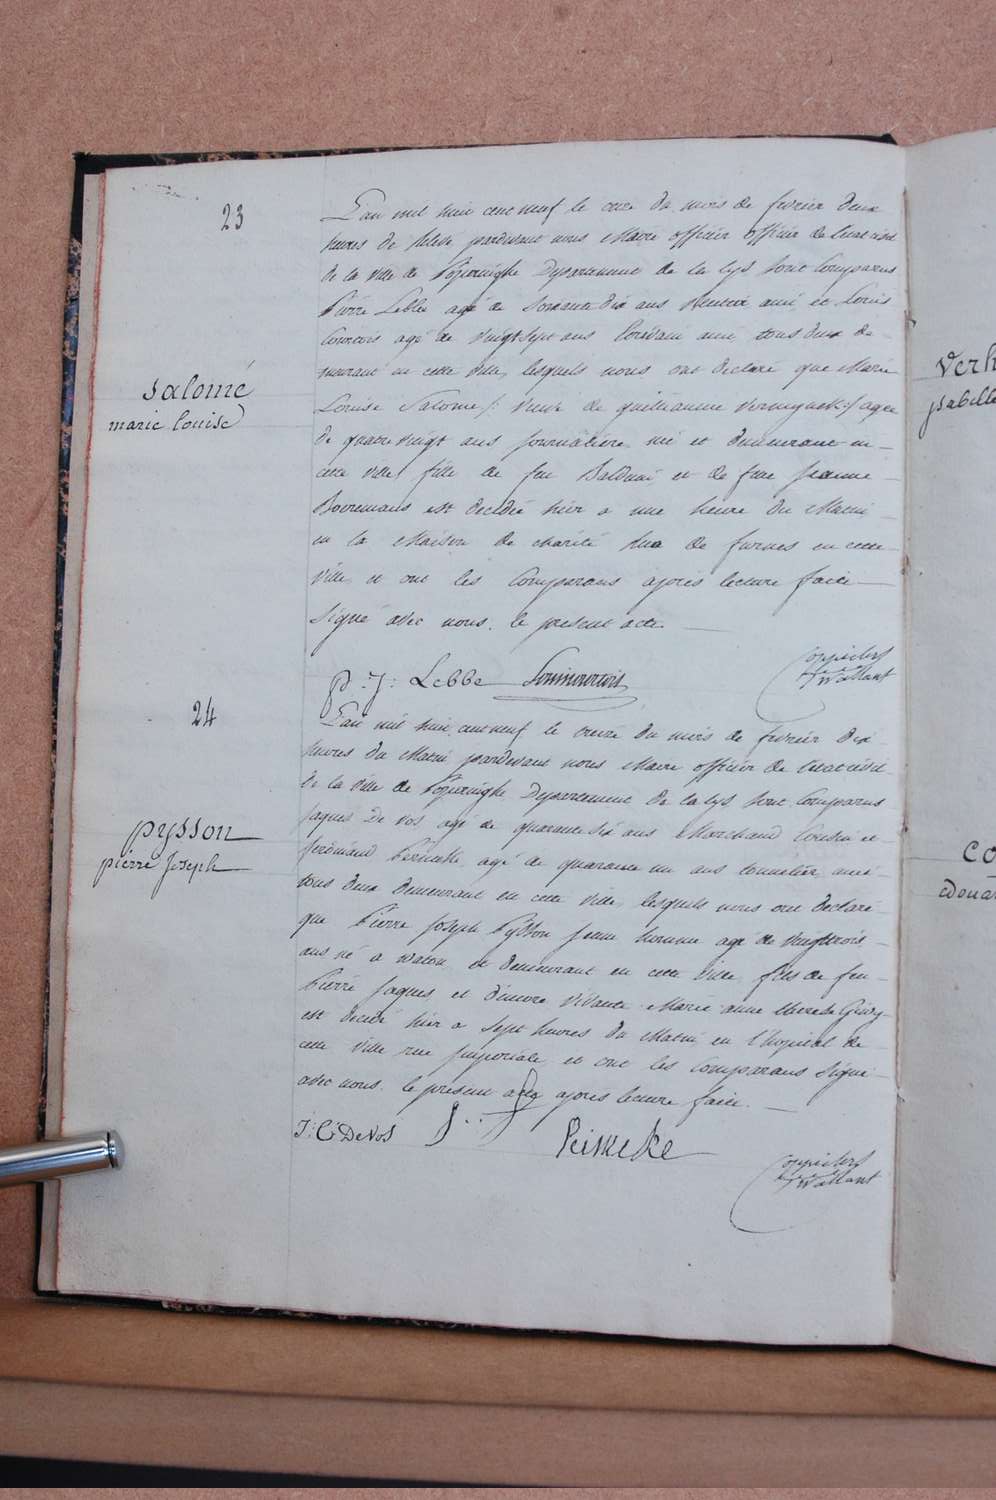 23
L'an mil huit cent neuf le onze du mois de fevrier deux
heures de relevé pardevant nous Maire officier officier de l'état civil
de la ville de Poperinghe Departement de la lys sont Comparus
Pierre Lebbe agé de Soixante dix ans ami et Louis
Courtois agé de vingt sept ans ami tous deux de
meurant en cette ville, lesquels nous ont declaré que Marie
Louise Salomé /: veuve de guilliaume :/ agée
de quatre vingt ans journaliere née et demeurant en
cette ville fille de feu Balduin et de feue Jeanne
Borremans est decedée hier a une heure du Matin
en la Maison de charité rue de furnes en cette
ville, et ont les Comparans après lecture faite
Signé avec nous le present acte
salomé
marie louise
P: J: Lebbe
Coppieters
't Wallant
24
L'an mil huit cent neuf le treize du mois de fevrier dix
heures du Matin pardevant nous Maire officier de l'état civil
de la ville de Poperinghe Departement de la lys sont Comparus
Jaques De Vos agé de quarante six ans Marchand Cousin et
ferdinand agé de quarante un ans tonnelier ami
tous deux demeurant en cette ville, lesquels nous ont declaré
que Pierre Joseph Pysson jeune homme agé de vingt trois
ans né a watou et demeurant en cette ville fils de feu
Pierre Jaques et d'encore vivante Marie anne
est decedé hier a sept heures du Matin en l'hopital de
cette ville rue imperiale et ont les Comparans signé
avec nous le present acte après lecture faite.
pysson
pierre Joseph
J: C: DeVos
Coppieters
't Wallant
verh
isabelle
co
edouar